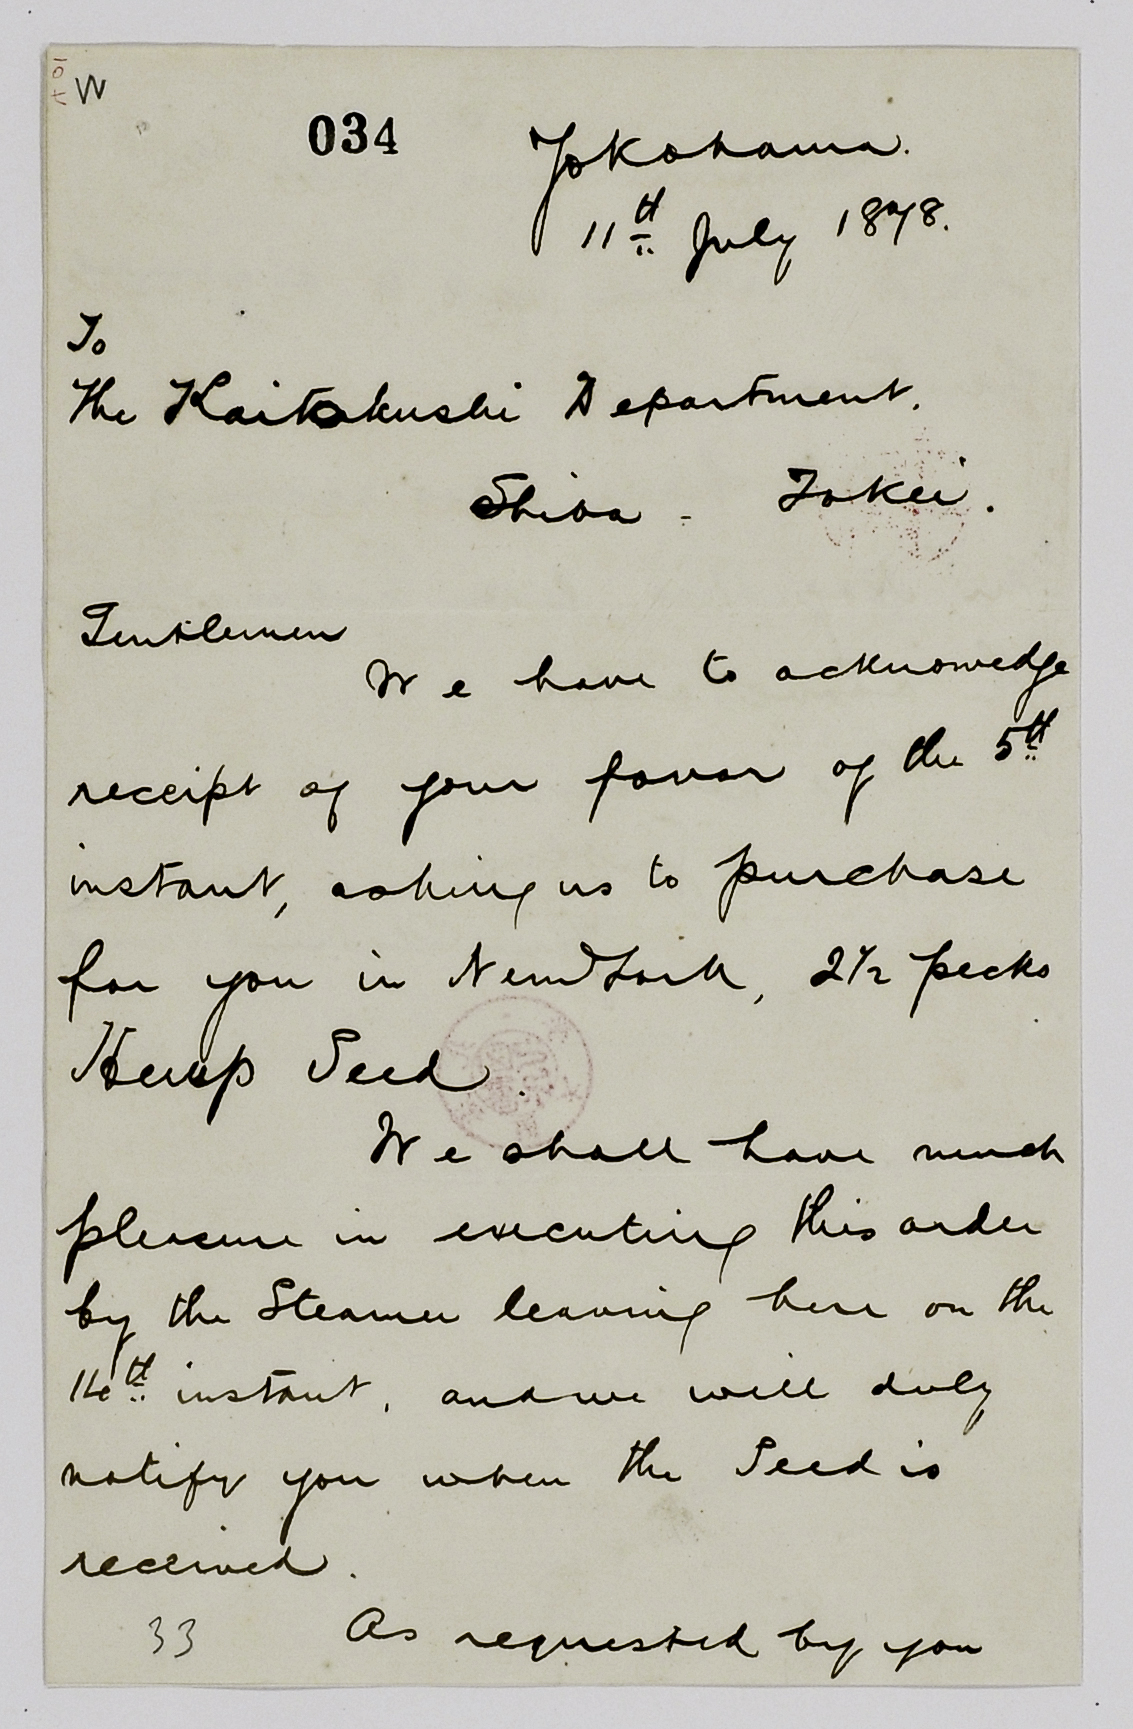 W
034
Yokohama.
11th July 1878.
To
The Kaitakushi Department.
Shiba - Tokei.
Gentlemen
We have to acknowedge
receipt of your favor of the 5th
instant, asking us to purchase
for you in New York, 2½ pecks
Hemp Seed.
We shall have much
pleasure in executing this order
by the Steamer leaving here on the
14th instant, and we will duly
notify you when the Seed is
received.
33 As requested by you